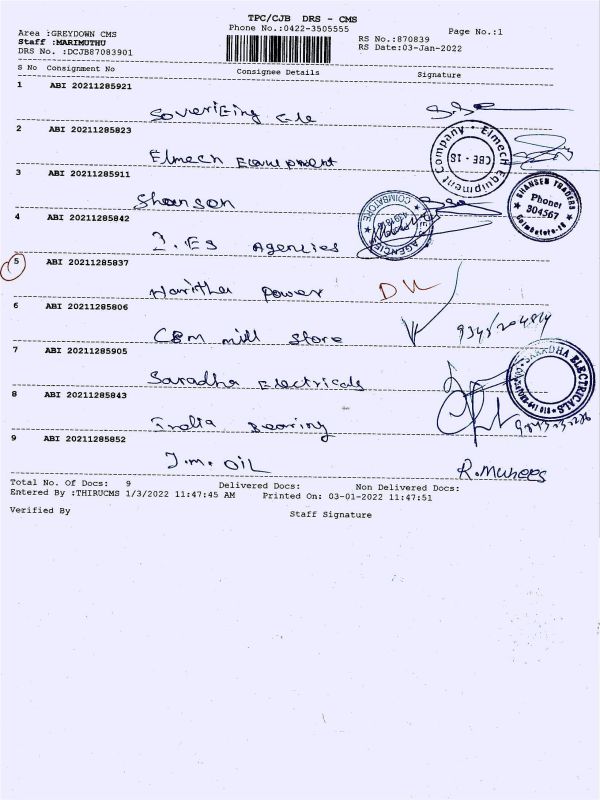 TPC/CJB DRS - CMS
Area :GREYDOWN CMS
Phone No.:0422-3505555
Page No.:1
Staff :MARIMUTHU
RS No.:870839
DRS No. :DCJB87083901
RS Date:03-Jan-2022
S No Consignment No Consignee Details Signature
1 ABI 20211285921
2 ABI 20211285823
Elmech Equipment
Elmech Equipment Company
CBE - 18
3 ABI 20211285911
Shansen
SHANSEN TRADERS
Phone:
304567
Coimbatore-18
4 ABI 20211285842
I.ES Agencies
AGENCIES
COIMBATORE
5 ABI 20211285837
Haritha power
6 ABI 20211285806
CBM mill store
7 ABI 20211285905
Saradha Electricals
SARADHA ELECTRICALS
8 ABI 20211285843
India Bearing
9 ABI 20211285852
J.M. OIL
R.Munees
Total No. Of Docs: 9 Delivered Docs: Non Delivered Docs:
Entered By :THIRUCMS 1/3/2022 11:47:45 AM Printed On: 03-01-2022 11:47:51
Verified By Staff Signature